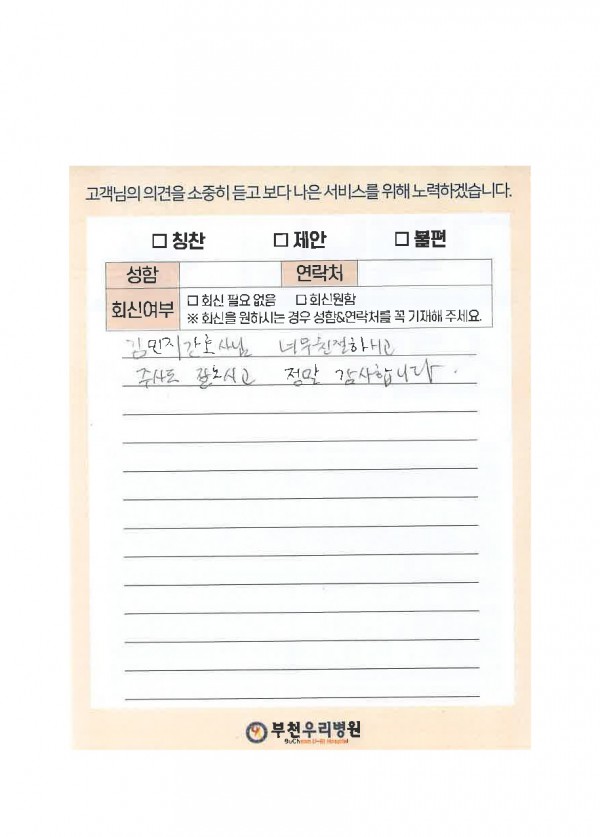 고객님의 의견을 소중히 듣고 보다 나은 서비스를 위해 노력하겠습니다.
□ 칭찬 □ 제안 □ 불편
성함 연락처
회신여부 □ 회신 필요 없음 □ 회신원함
※ 회신을 원하시는 경우 성함&연락처를 꼭 기재해 주세요.
김민지간호사님 너무친절하시고
주사도 잘노시고 정말 감사합니다.
부천우리병원